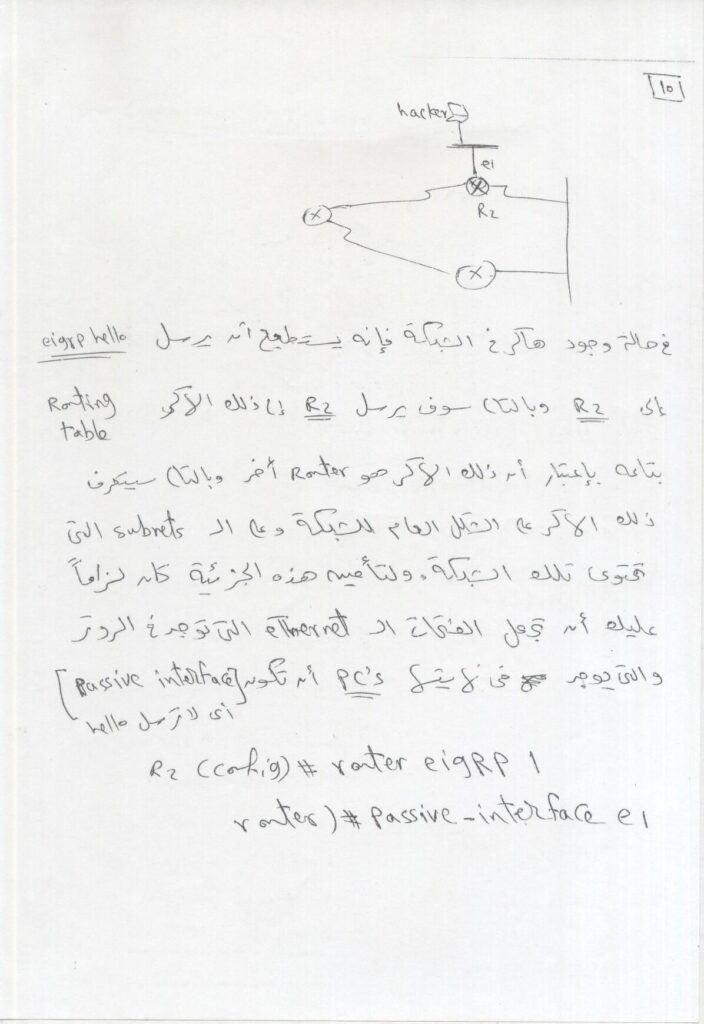 10
hacker
e1
R2
فى حالة وجود هاكر فى الشبكة فإنه يستطيع أنه يرسل eigrp hello
إلى R2 وبالتالى سوف يرسل R2 إلى ذلك الآكر Routing table
بتاعه بإعتبار أنه ذلك الآكر هو Router أخر وبالتالى سيتعرف
ذلك الآكر على الشكل العام للشبكة وعلى الـ subnets التى
تحتوى تلك الشبكة. ولتأمين هذه الجزئية كان لزاماً
عليك أن تجعل الفتحات الـ ethernet التى توجد فى الروتر
والتى يوجد فى نهايتها PC's أن تكون [Passive interface]
أى لا ترسل hello
R2 (config)# router eigRP 1
router)# passive-interface e1